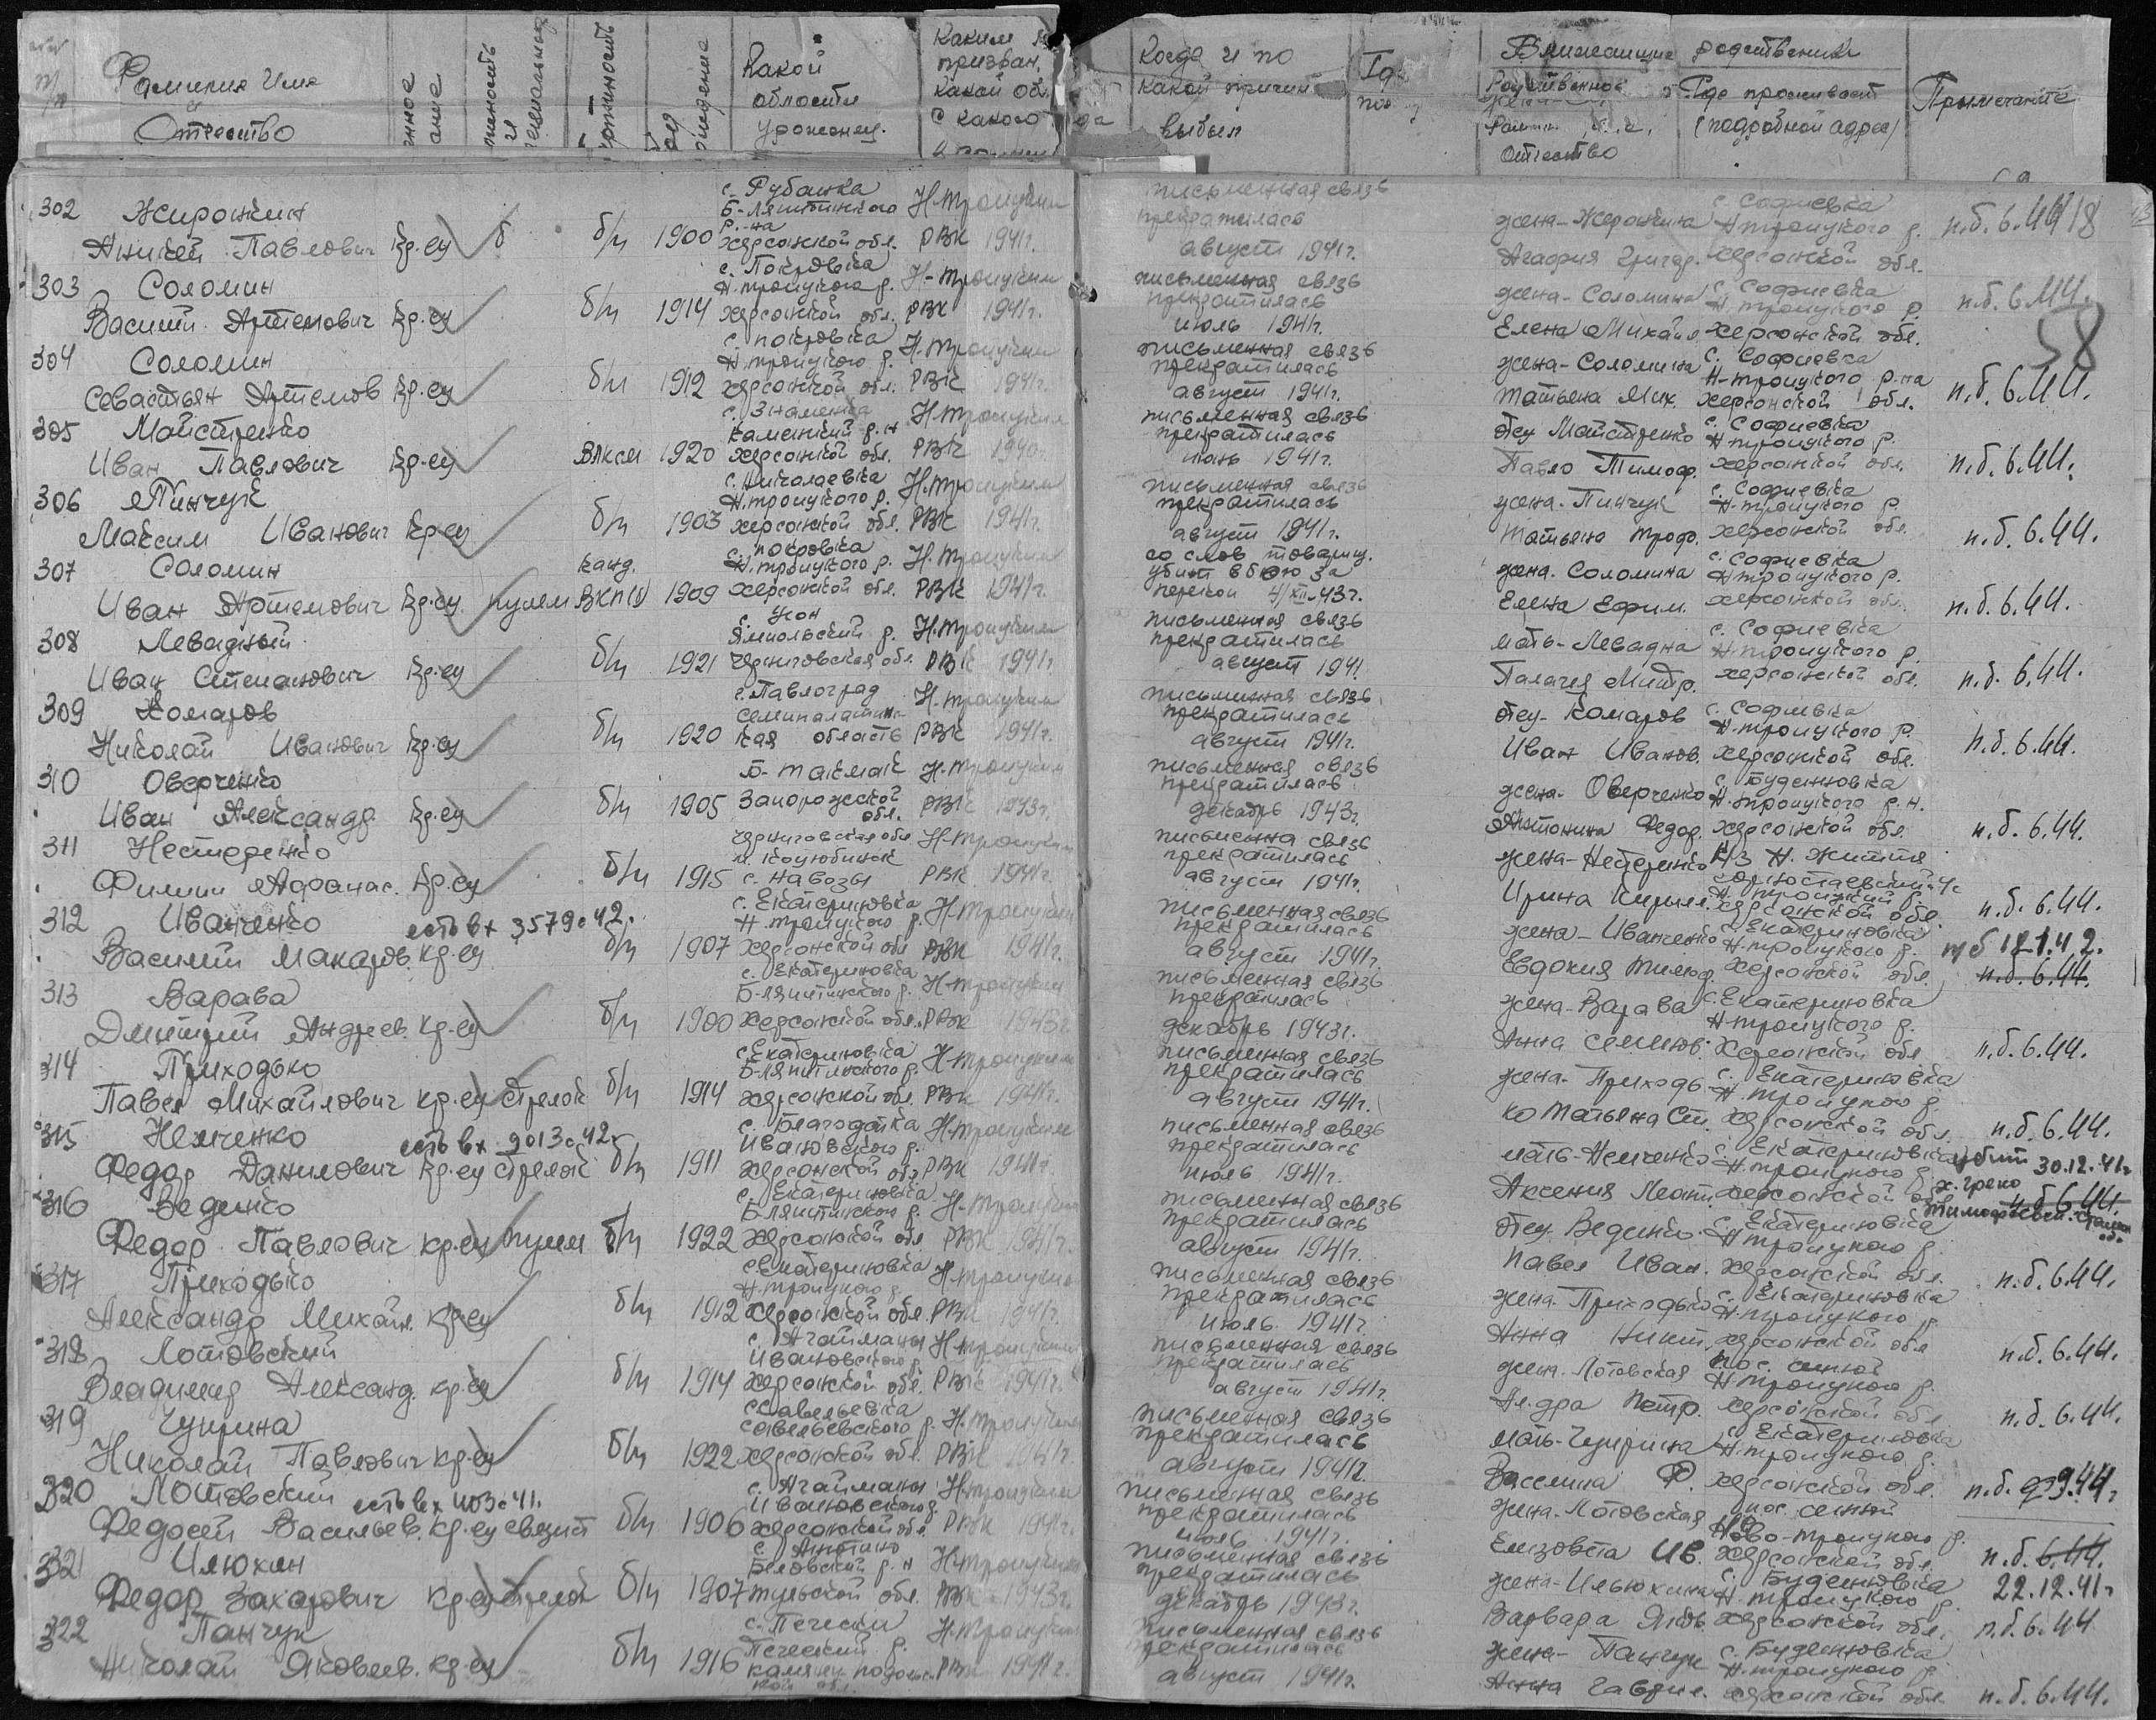 Фамилия Имя
Отчество
Какой
области
уроженец.
Каким
призван,
какой обл.
с какого
Когда и по
какой причин
выбыл
Ближайшие родственники
Где проживает
(подробной адрес)
Отчество
Примечание
302 Жирожкин
Аникей Павлович кр-ец б б/п 1900 с. Рубановка
Б-Лепетихского
р-на
херсонской обл. Н-Троицким
РВК 1941г. письменная связь
прекратилась
август 1941г. жена-Жерожкина
Агафия Григор. с. Софиевка
Н-троицкого р.
херсонской обл. п.б. 6.44 18
303 Соломин
Василий Артемович кр-ец б/п 1914 с. Покровка
Н-троицкого р.
херсонской обл. Н-Троицким
РВК 1941г. письменная связь
прекратилась
июль 1941г. жена-Соломина
Елена Михайл. с. Софиевка
Н-троицкого р.
херсонской обл. п.б. 6.44.
58
304 Соломин
Севастьян Артемов кр-ец б/п 1912 с. покровка
Н-троицкого р.
херсонской обл. Н-Троицким
РВК 1941г. письменная связь
прекратилась
август 1941г. жена-Соломина
Татьяна Мих. с. Софиевка
Н-троицкого р-на
херсонской обл. п.б. 6.44.
305 Майстренко
Иван Павлович кр-ец ВЛКСМ 1920 с. Знаменка
Каменский р-н
херсонской обл. Н-Троицким
РВК 1940г. письменная связь
прекратилась
июнь 1941г. отец Майстренко
Павло Тимоф. с. Софиевка
Н-троицкого р.
херсонской обл. п.б. 6.44.
306 Пинчук
Максим Иванович кр-ец б/п 1903 с. Николаевка
Н-троицкого р.
херсонской обл. Н-Троицким
РВК 1941г. письменная связь
прекратилась
август 1941г. жена-Пинчук
Татьяна Троф. с. Софиевка
Н-троицкого р.
херсонской обл. п.б. 6.44.
307 Соломин
Иван Артемович кр-ец пулем канд.
ВКП(б) 1909 с. покровка
Н-троицкого р.
херсонской обл. Н-Троицким
РВК 1941г. со слов товарищ.
убит в бою за
перекоп 4/XII-43г. жена-Соломина
Елена Ефим. с. Софиевка
Н-троицкого р.
херсонской обл. п.б. 6.44.
308 Левадный
Иван Степанович кр-ец б/п 1921 с. Усок
Ямпольский р.
черниговская обл. Н-Троицким
РВК 1941г письменная связь
прекратилась
август 1941. мать-Левадна
Палагея Митр. с. Софиевка
Н-троицкого р.
херсонской обл. п.б. 6.44.
309 Комаров
Николай Иванович кр-ец б/п 1920 с. Павлоград
семипалатинс-
кая область Н-Троицким
РВК 1941г. письменная связь
прекратилась
август 1941г. отец-Комаров
Иван Иванов. с. Софиевка
Н-троицкого р.
херсонской обл. п.б. 6.44.
310 Оверченко
Иван Александр кр-ец б/п 1905 Б-Такмак
Запорожской
обл. Н-Троицким
РВК 1943г. письменная связь
прекратилась
декабрь 1943г. жена-Оверченко
Антонина Федор. с. Буденновка
Н-троицкого р.н.
херсонской обл. п.б. 6.44.
311 Нестеренко
Филипп Афанас. кр-ец б/п 1915 черниговская обл
м. Коцюбинск
с. Навозы Н-Троицким
РВК 1941г. письменна связь
прекратилась
август 1941г. жена-Нестеренко
Ирина Кирил. К/з Н. Життя
Н-троицкий р.
херсонской обл. п.б. 6.44.
312 Иванченко есть вх 3579с42.
Василий Макаров. кр-ец б/п 1907 с. Екатериновка
Н-троицкого р.
херсонской обл Н-Троицким
РВК 1941г. письменная связь
прекратилась
август 1941г. жена-Иванченко
Евдокия Тимоф. с. Екатериновка
Н-троицкого р.
херсонской обл. п/б 18.1.42.
п.б. 6.44.
313 Варава
Дмитрий Андреев. кр-ец б/п 1900 с. Екатериновка
Б-Лепетихского р.
херсонской обл. Н-Троицким
РВК 1943г. письменная связь
прекратилась
декабрь 1943г. жена-Варава
Анна Семенов. с. Екатериновка
Н-троицкого р.
херсонской обл п.б. 6.44.
314 Приходько
Павел Михайлович кр-ец стрелок б/п 1914 с. Екатериновка
Б-Лепетихского р.
херсонской обл. Н-Троицким
РВК 1941г. письменная связь
прекратилась
август 1941г. жена-Приходь-
ко Татьяна Ст. с. Екатериновка
Н-троицкого р.
херсонской обл. п.б. 6.44.
315 Немченко есть вх 9013с42
Федор Данилович кр-ец стрелок б/п 1911 с. Благодатка
Ивановского р.
херсонской обл Н-Троицким
РВК 1941г. письменная связь
прекратилась
июль 1941г. мать-Немченко
Аксения Мат. с. Екатериновка
Н-троицкого р.
херсонской обл. убит 30.12.41г
х. Греко
Тимофеевск. Сталин
об.
п.б 6.44.
316 Веденко
Федор Павлович кр-ец пулем б/п 1922 с. Екатериновка
Б-Лепетихском р.
херсонской обл Н-Троицким
РВК 1941г. письменная связь
прекратилась
август 1941г. отец-Веденко
Павел Иван. с. Екатериновка
Н-троицкого р.
херсонской обл. п.б. 6.44.
317 Приходько
Александр Михайл. кр-ец б/п 1912 с. Екатериновка
Н-троицкого р.
херсонской обл. Н-Троицким
РВК 1941г. письменная связь
прекратилась
июль 1941г. жена-Приходько
Анна Никит. с. Екатериновка
Н-троицкого р.
херсонской обл п.б. 6.44.
318 Лотовский
Владимир Александ. кр-ец б/п 1914 с. Агайманы
Ивановского р.
херсонской обл. Н-Троицким
РВК 1941г. письменная связь
прекратилась
август 1941г. жена-Лотовская
Ал-дра Петр. пос. сенной
Н-троицкого р.
херсонской обл. п.б. 6.44.
319 Чуприна
Николай Павлович кр-ец б/п 1922 с. Савельевка
савельевского р.
херсонской обл. Н-Троицким
РВК 1941г. письменная связь
прекратилась
август 1941г. мать-Чуприна
Василина Ф. с. Екатериновка
Н-троицкого р.
херсонской обл. п.б. 9.44г
320 Лотовский есть вх 403с41.
Федосей Васильев. кр-ец связист б/п 1906 с. Агайманы
Ивановского р
херсонской обл Н-Троицким
РВК 1941г. письменная связь
прекратилась
июль 1941г. жена-Лотовская
Елизовета Ив. пос. сенной
Ново-троицкого р.
херсонской обл. п.б. 6.44.
22.12.41г
321 Илюхин
Федор Захарович кр-ец стрелок б/п 1907 Беловский р-н
тульской обл. Н-Троицким
РВК 1943г. письменная связь
прекратилась
декабрь 1943г. жена-Ильюхина
Варвара Яков. с. Буденновка
Н-троицкого р.
херсонской обл. п.б. 6.44
322 Панчук
Николай Яковлев. кр-ец б/п 1916 с. Печески
Печеский р.
камянец подольс-
кой обл. Н-Троицким
РВК 1941г. письменная связь
прекратилась
август 1941г. жена-Панчук
Анна Гаврил. с. Буденновка
Н-троицкого р.
херсонской обл. п.б. 6.44.